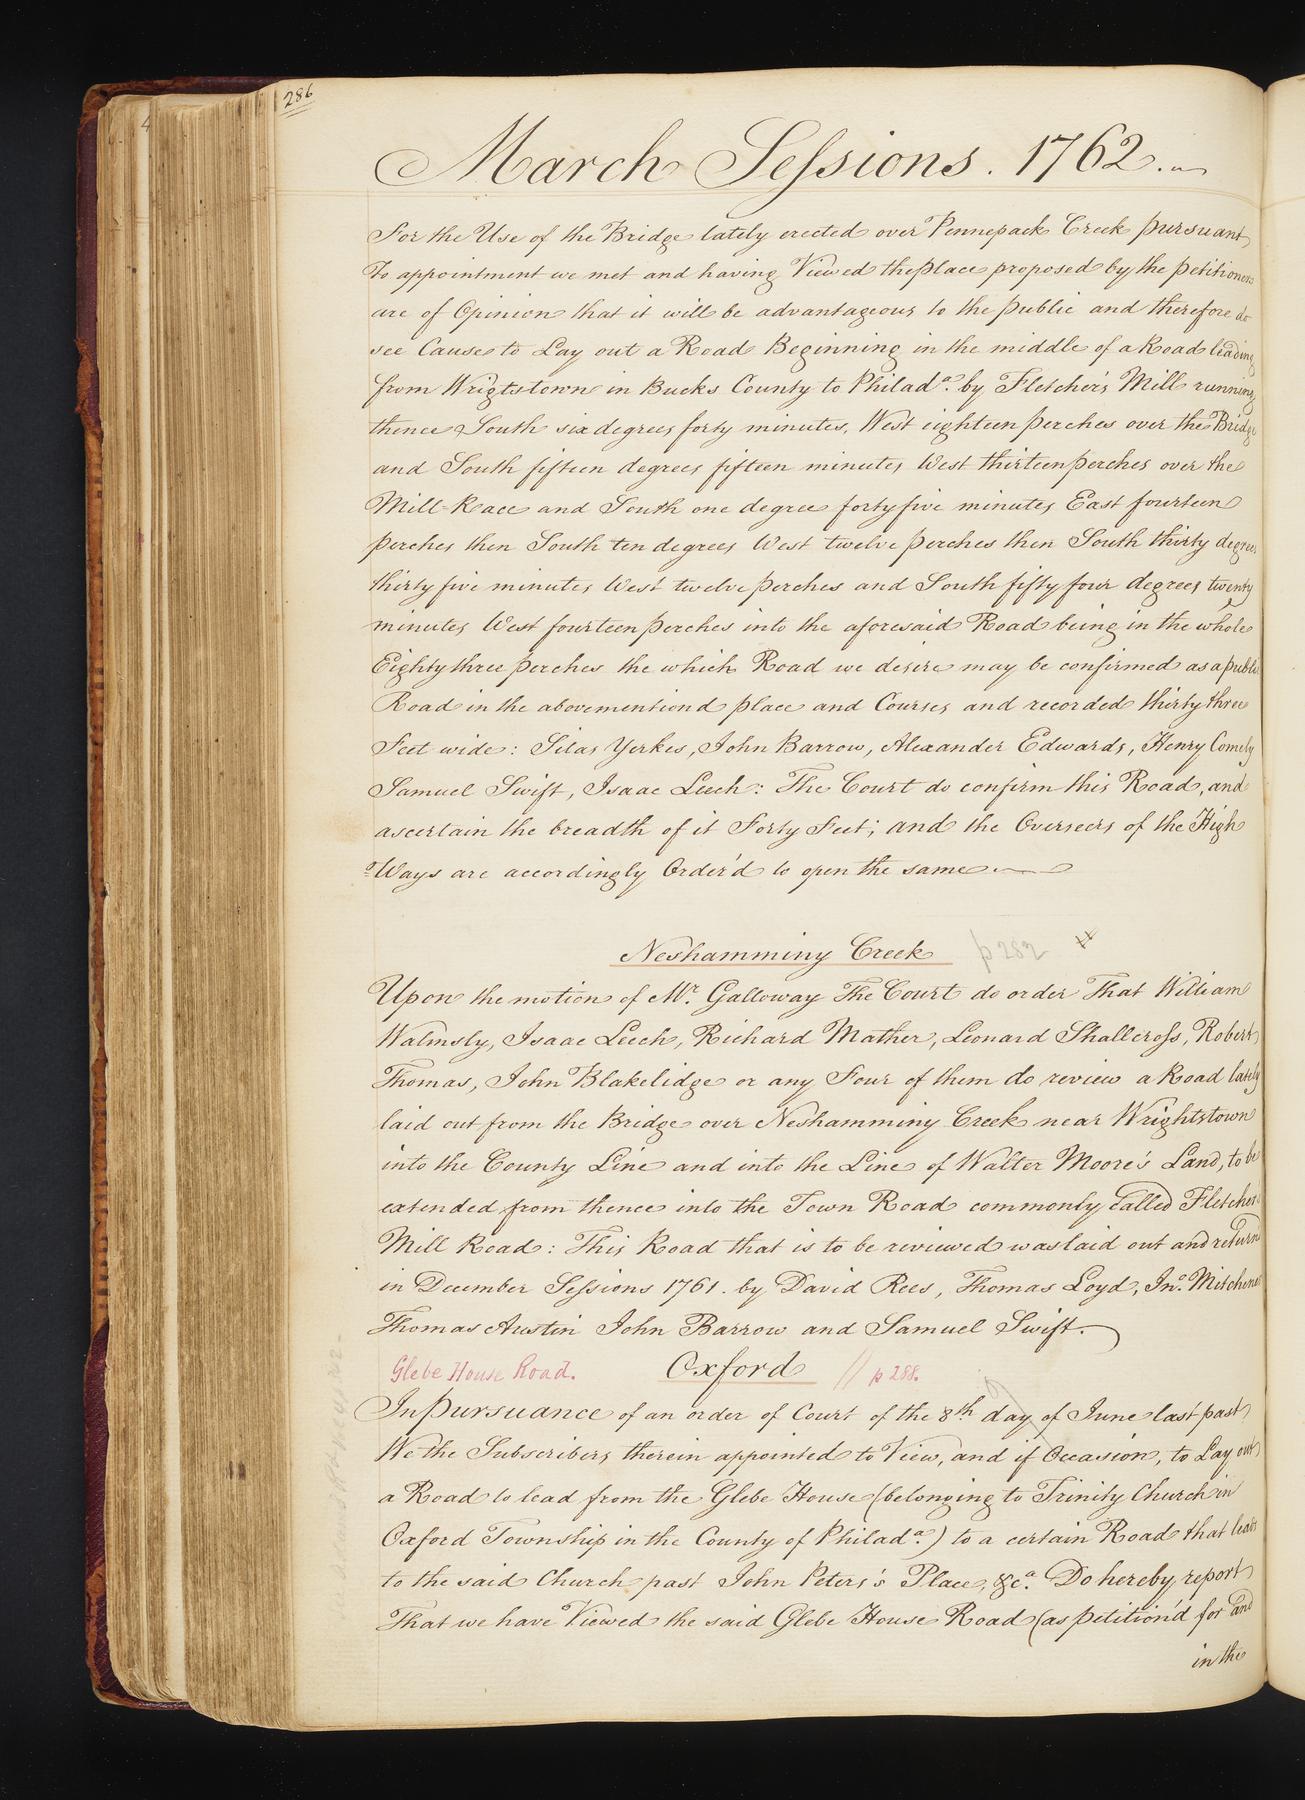 286
March Sessions. 1762.
For the Use of the Bridge lately erected over Pennepack Creek pursuant
To appointment we met and having Viewed the place proposed by the petitioners
are of Opinion that it will be advantageous to the public and therefore do
see Cause to Lay out a Road Beginning in the middle of a Road leading
from Wrigtstown in Bucks County to Philad.ª by Fletcher's Mill running
thence South six degrees forty minutes, West eighteen perches over the Bridge
and South fifteen degrees fifteen minutes West thirteen perches over the
Mill-Race and South one degree forty five minutes East fourteen
perches then South ten degrees West twelve perches then South thirty degrees
thirty five minutes West twelve perches and South fifty four degrees twenty
minutes West fourteen perches into the aforesaid Road being in the whole
Eighty three perches the which Road we desire may be confirmed as a public
Road in the abovementiond place and Courses and recorded thirty three
Feet wide: Silas Yerkes, John Barrow, Alexander Edwards, Henry Comely
Samuel Swift, Isaac Leech: The Court do confirm this Road, and
ascertain the breadth of it Forty Feet; and the Overseers of the High
=Ways are accordingly Order'd to open the same
Neshamminy Creek p 282 #
Upon the motion of Mr. Galloway The Court do order That William
Walmsly, Isaac Leech, Richard Mather, Leonard Shallcross, Robert
Thomas, John Blakelidge or any Four of them do review a Road lately
laid out from the Bridge over Neshamminy Creek near Wrightstown
into the County Line and into the Line of Walter Moore's Land, to be
extended from thence into the Town Road commonly called Fletcher's
Mill Road: This Road that is to be reviewed was laid out and return'd
in December Sessions 1761. by David Rees, Thomas Loyd, Jnº. Mitchener
Thomas Austin John Barrow and Samuel Swift.
Glebe House Road. Oxford // p 288.
In pursuance of an order of Court of the 8th day of June last past
We the Subscribers therein appointed to View, and if Occasion, to Lay out
a Road to lead from the Glebe House (belonging to Trinity Church in
Oxford Township in the County of Philad.ª) to a certain Road that leads
to the said Church past John Peters's Place, &c.ª Do hereby report
That we have Viewed the said Glebe House Road (as petition'd for and
in the